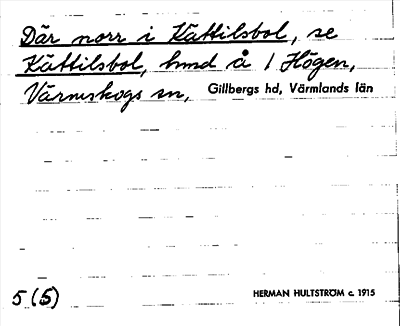 Där norr i Kättilsbol, se
Kättilsbol, hmd å 1 Högen,
Värmskogs sn, Gillbergs hd, Värmlands län
5 (5) HERMAN HULTSTRÖM c. 1915